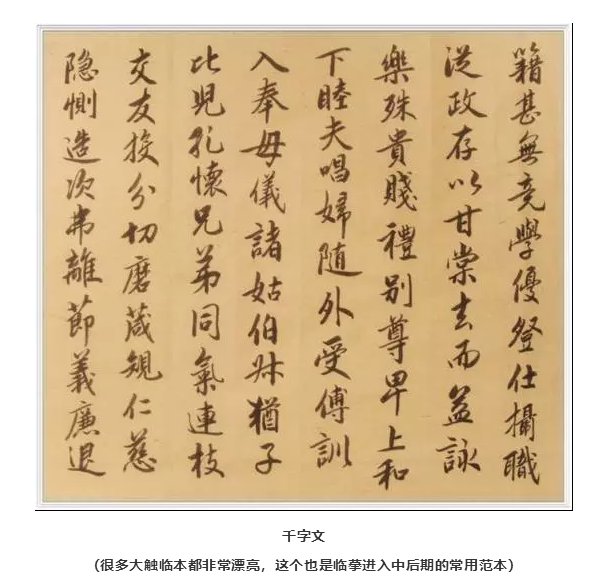 籍甚無竟學優登仕攝職
從政存以甘棠去而益詠
樂殊貴賤禮別尊卑上和
下睦夫唱婦随外受傅訓
入奉母儀諸姑伯叔猶子
比兒孔懷兄弟同氣連枝
交友投分切磨箴規仁慈
隐惻造次弗離節義廉退
千字文
（很多大触临本都非常漂亮，这个也是临摹进入中后期的常用范本）